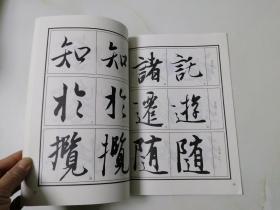 知 知
於 於
攬 攬
諸 託
遷 遊
随 随